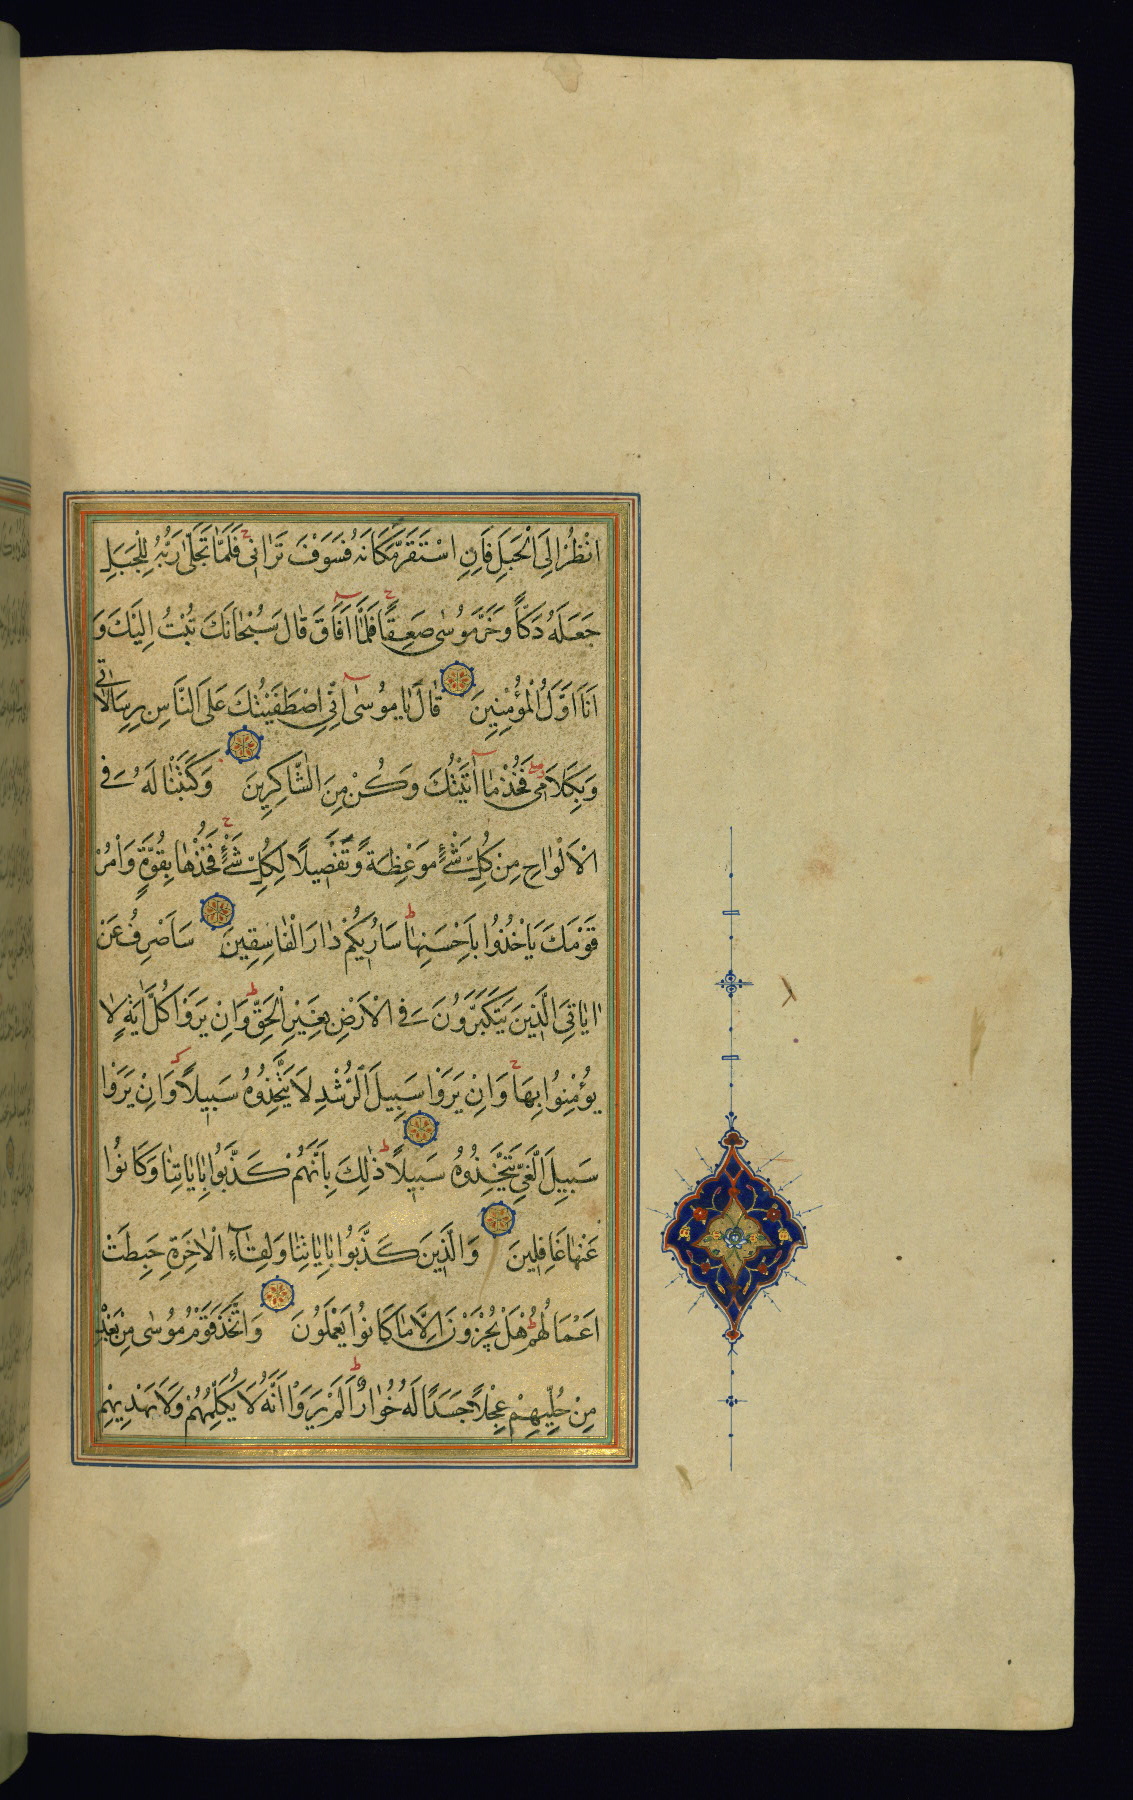 انْظُرْ اِلَى الْجَبَلِ فَاِنِ اسْتَقَرَّ مَكَانَهُ فَسَوْفَ تَرٰانِى فَلَمَّا تَجَلّٰى رَبُّهُ لِلْجَبَلِ
جَعَلَهُ دَكًّا وَخَرَّ مُوسٰى صَعِقًا فَلَمَّا اَفَاقَ قٰالَ سُبْحٰانَكَ تُبْتُ اِلَيْكَ وَ
اَنَا اَوَّلُ الْمُؤْمِنِينَ قٰالَ يٰا مُوسٰى اِنِّى اصْطَفَيْتُكَ عَلَى النَّاسِ بِرِسٰالاٰتِى
وَبِكَلاٰمِى فَخُذْ مٰا اٰتَيْتُكَ وَكُنْ مِنَ الشَّاكِرِينَ وَكَتَبْنٰا لَهُ فِى
الْاَلْوٰاحِ مِنْ كُلِّ شَىْءٍ مَوْعِظَةً وَتَفْصِيلًا لِكُلِّ شَىْءٍ فَخُذْهٰا بِقُوَّةٍ وَاْمُرْ
قَوْمَكَ يَاْخُذُوا بِاَحْسَنِهٰا سَاُرِيكُمْ دٰارَ الْفٰاسِقِينَ سَاَصْرِفُ عَنْ
اٰيٰاتِىَ الَّذِينَ يَتَكَبَّرُونَ فِى الْاَرْضِ بِغَيْرِ الْحَقِّ وَاِنْ يَرَوْا كُلَّ اٰيَةٍ لٰا
يُؤْمِنُوا بِهَا وَاِنْ يَرَوْا سَبِيلَ الرُّشْدِ لَا يَتَّخِذُوهُ سَبِيلًا وَاِنْ يَرَوْا
سَبِيلَ الْغَىِّ يَتَّخِذُوهُ سَبِيلًا ذٰلِكَ بِاَنَّهُمْ كَذَّبُوا بِاٰيٰاتِنٰا وَكَانُوا
عَنْهٰا غَافِلِينَ وَالَّذِينَ كَذَّبُوا بِاٰيٰاتِنٰا وَلِقٰٓاءِ الْاٰخِرَةِ حَبِطَتْ
اَعْمَالُهُمْ هَلْ يُجْزَوْنَ اِلَّا مٰا كَانُوا يَعْمَلُونَ وَاتَّخَذَ قَوْمُ مُوسٰى مِنْ بَعْدِهِ
مِنْ حُلِيِّهِمْ عِجْلًا جَسَدًا لَهُ خُوَارٌ اَلَمْ يَرَوْا اَنَّهُ لَا يُكَلِّمُهُمْ وَلَا يَهْدِيهِمْ